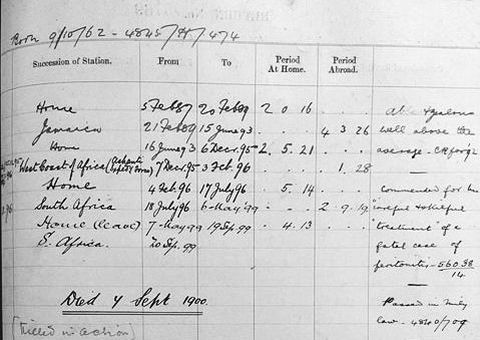 Born 9/10/62 - 4845/M/474
Succession of Station. From To Period At Home. Period Abroad.
Home 5 Feb 87 20 Feb 89 2 0 16
Jamaica 21 Feb 89 15 June 93 . . . 4 3 26
Home 16 June 93 6 Decr. 95 2. 5. 21
West Coast of Africa (Ashanti 7 Decr. 95 3 Feb. 96 . . . 1. 28
Home 4 Feb. 96 17 July 96 5. 14
South Africa 18 July 96 6 May '99 . . . 2 9. 19
Home (leave) 7 May 99 19 Sep. 99 . 4. 13
S. Africa. 20 Sep. 99
Died 4 Sept 1900.
[Killed in action]
Able & zealous
well above the
average -
commended for his
useful & skilful
treatment of a
fatal case of
peritonitis - 56038
14
Passed in
law - 4840/709